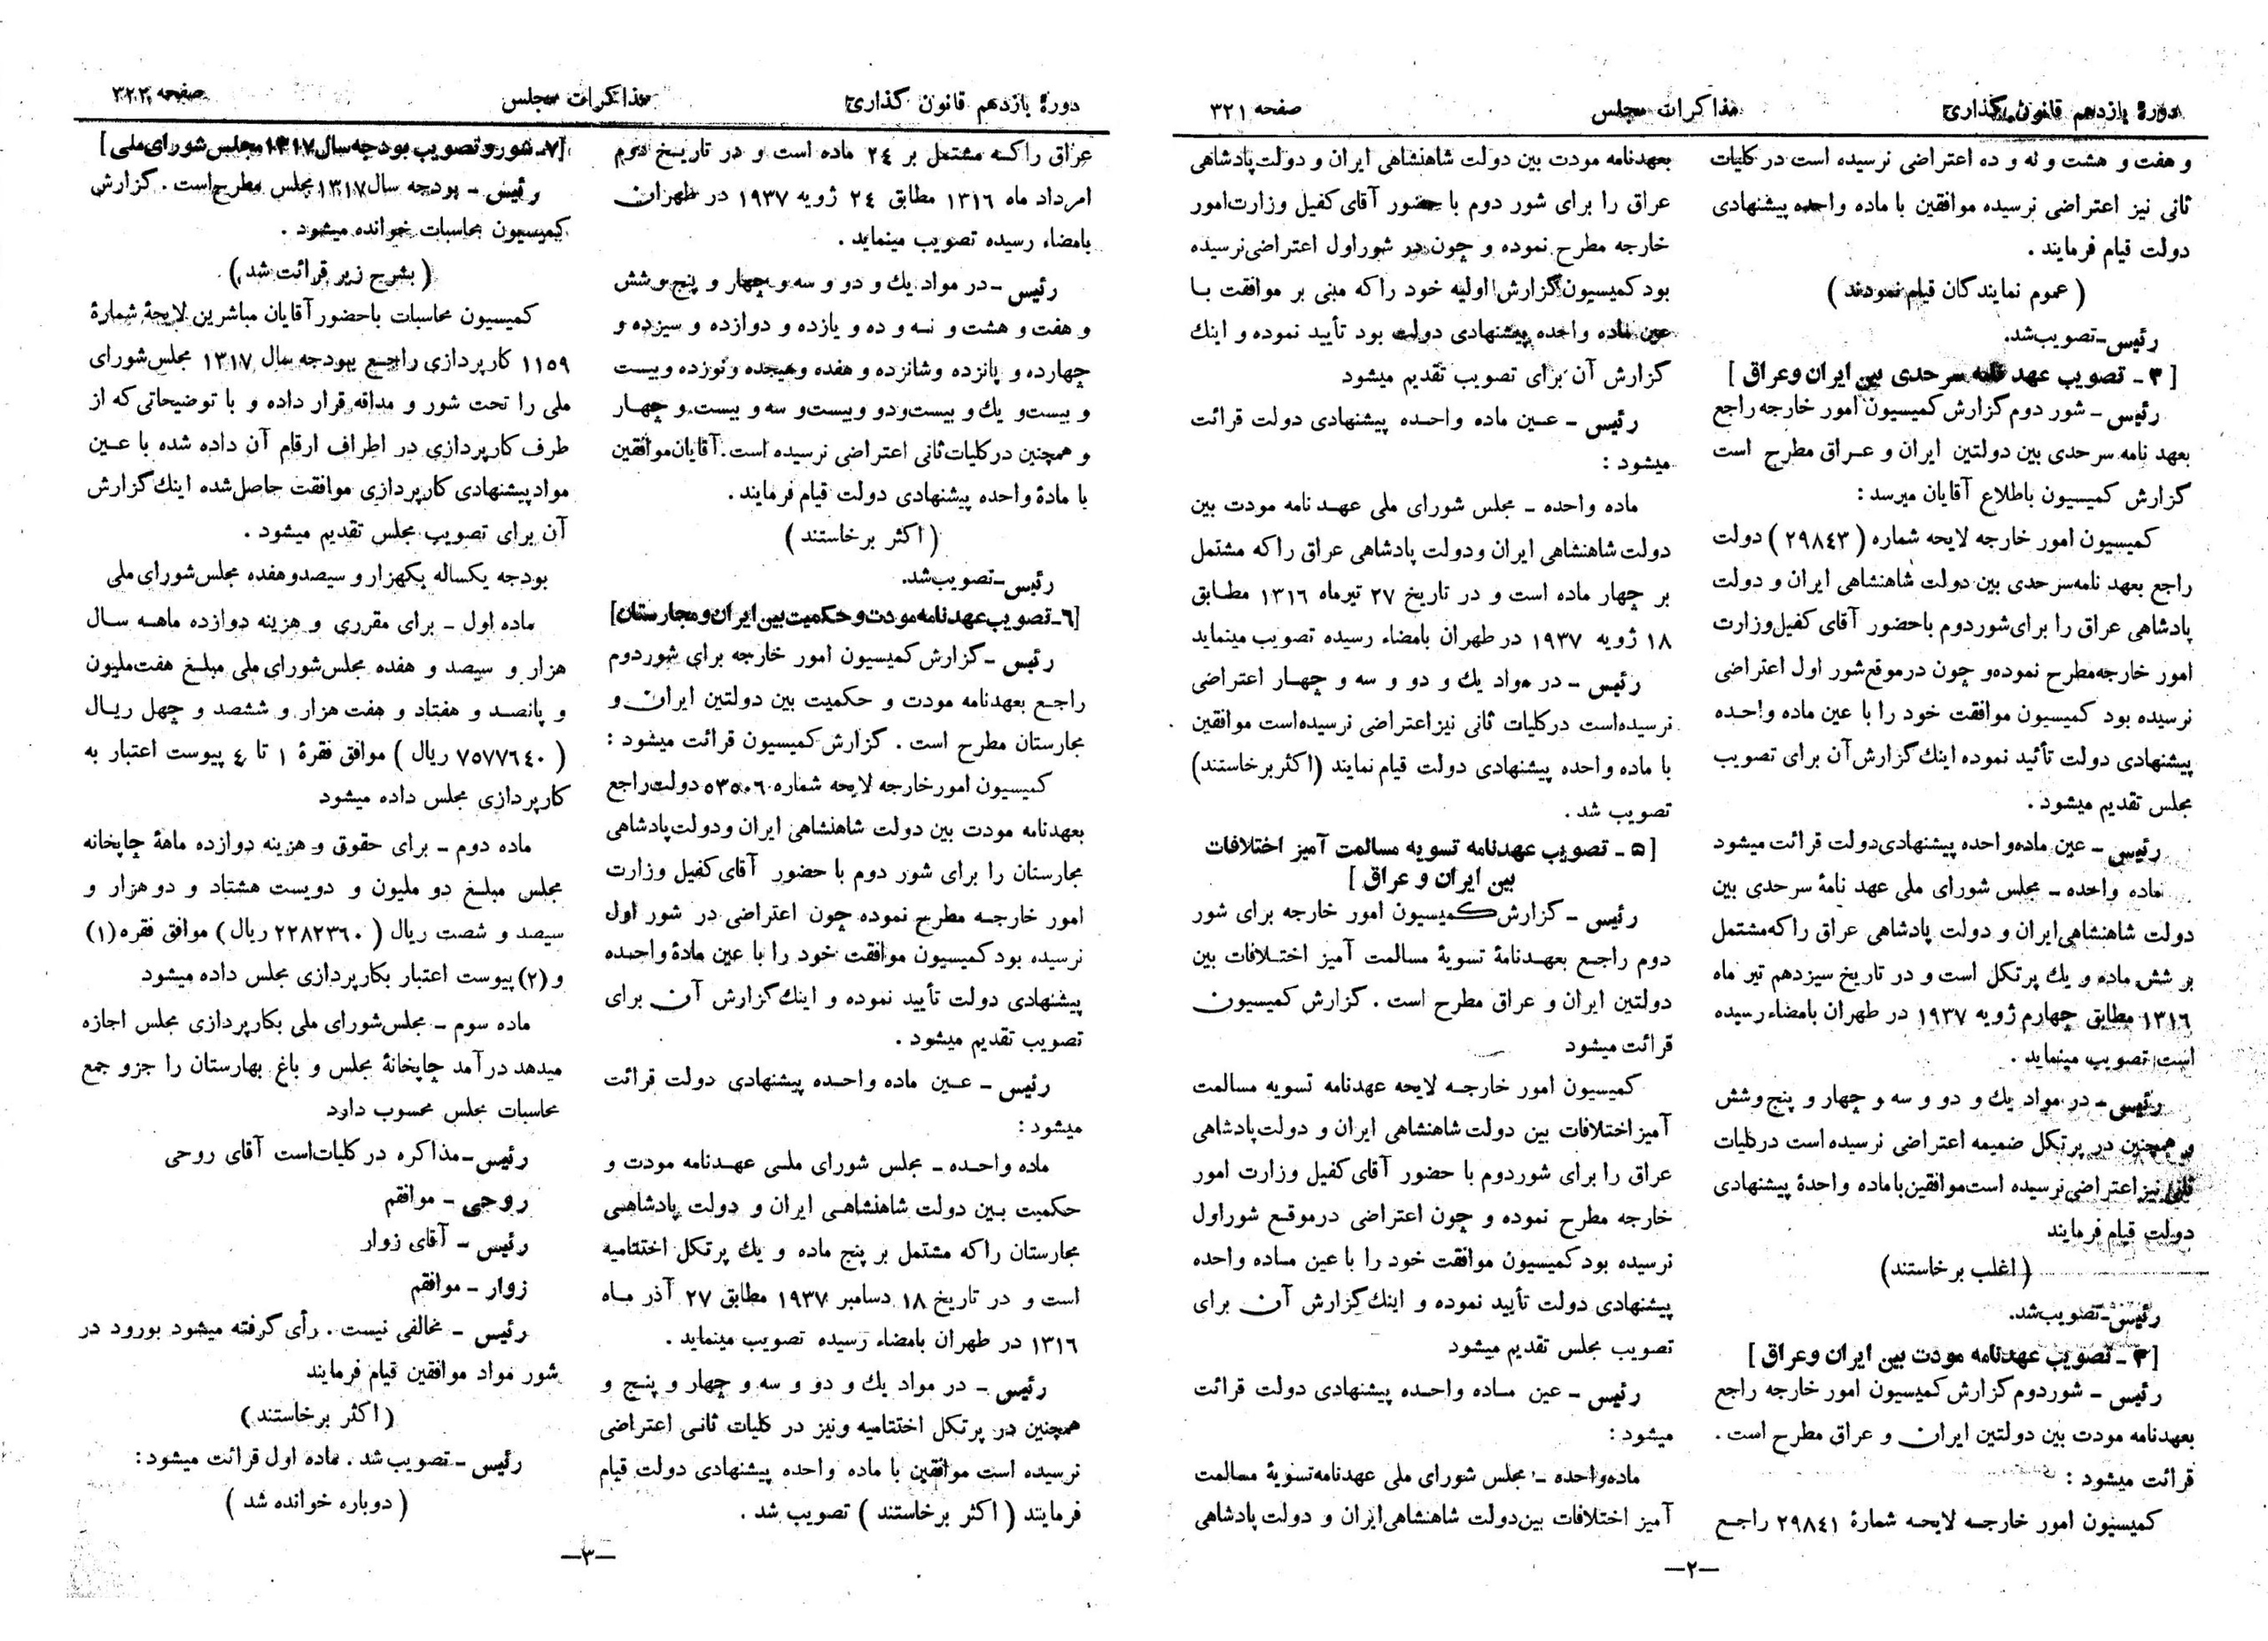 دورهٔ یازدهم قانون گذاری
مذاکرات مجلس
صفحه ۳۲۱
و هفت و هشت و نه و ده اعتراضی نرسیده است در کلیات
ثانی نیز اعتراضی نرسیده موافقین با ماده واحده پیشنهادی
دولت قیام فرمایند .
( عموم نمایندگان قیام نمودند )
رئیس ـ تصویب شد.
[ ۳ ـ تصویب عهد نامه سرحدی بین ایران و عراق ]
رئیس ـ شور دوم گزارش کمیسیون امور خارجه راجع
بعهد نامه سرحدی بین دولتین ایران و عراق مطرح است
گزارش کمیسیون باطلاع آقایان میرسد :
کمیسیون امور خارجه لایحه شماره ( ۲۹۸٤۳ ) دولت
راجع بعهد نامه سرحدی بین دولت شاهنشاهی ایران و دولت
پادشاهی عراق را برای شور دوم باحضور آقای کفیل وزارت
امور خارجه مطرح نموده و چون در موقع شور اول اعتراضی
نرسیده بود کمیسیون موافقت خود را با عین ماده واحده
پیشنهادی دولت تأئید نموده اینك گزارش آن برای تصویب
مجلس تقدیم میشود .
رئیس ـ عین ماده واحده پیشنهادی دولت قرائت میشود
ماده واحده ـ مجلس شورای ملی عهد نامهٔ سرحدی بین
دولت شاهنشاهی ایران و دولت پادشاهی عراق را که مشتمل
بر شش ماده و یك پرتکل است و در تاریخ سیزدهم تیر ماه
۱۳۱٦ مطابق چهارم ژویه ۱۹۳۷ در طهران بامضاء رسیده
است تصویب مینماید .
رئیس ـ در مواد یك و دو و سه و چهار و پنج و شش
و همچنین در پرتکل ضمیمه اعتراضی نرسیده است در کلیات
ثانی نیز اعتراضی نرسیده است موافقین با ماده واحدهٔ پیشنهادی
دولت قیام فرمایند
( اغلب برخاستند )
رئیس ـ تصویب شد.
[ ـ تصویب عهدنامه مودت بین ایران و عراق ]
رئیس ـ شور دوم گزارش کمیسیون امور خارجه راجع
بعهدنامه مودت بین دولتین ایران و عراق مطرح است .
قرائت میشود :
کمیسیون امور خارجه لایحه شمارهٔ ۲۹۸٤۱ راجع
بعهدنامه مودت بین دولت شاهنشاهی ایران و دولت پادشاهی
عراق را برای شور دوم با حضور آقای کفیل وزارت امور
خارجه مطرح نموده و چون در شور اول اعتراضی نرسیده
بود کمیسیون گزارش اولیه خود را که مبنی بر موافقت با
عین ماده واحده پیشنهادی دولت بود تأیید نموده و اینك
گزارش آن برای تصویب تقدیم میشود
رئیس ـ عین ماده واحده پیشنهادی دولت قرائت
میشود :
ماده واحده ـ مجلس شورای ملی عهد نامه مودت بین
دولت شاهنشاهی ایران و دولت پادشاهی عراق را که مشتمل
بر چهار ماده است و در تاریخ ۲۷ تیرماه ۱۳۱٦ مطابق
۱۸ ژویه ۱۹۳۷ در طهران بامضاء رسیده تصویب مینماید
رئیس ـ در مواد یك و دو و سه و چهار اعتراضی
نرسیده است در کلیات ثانی نیز اعتراضی نرسیده است موافقین
با ماده واحده پیشنهادی دولت قیام نمایند (اکثر برخاستند)
تصویب شد .
[ ۵ ـ تصویب عهدنامه تسویه مسالمت آمیز اختلافات
بین ایران و عراق ]
رئیس ـ گزارش کمیسیون امور خارجه برای شور
دوم راجع بعهدنامهٔ تسویهٔ مسالمت آمیز اختلافات بین
دولتین ایران و عراق مطرح است . گزارش کمیسیون
قرائت میشود
کمیسیون امور خارجه لایحه عهدنامه تسویه مسالمت
آمیز اختلافات بین دولت شاهنشاهی ایران و دولت پادشاهی
عراق را برای شور دوم با حضور آقای کفیل وزارت امور
خارجه مطرح نموده و چون اعتراضی در موقع شور اول
نرسیده بود کمیسیون موافقت خود را با عین ماده واحده
پیشنهادی دولت تأیید نموده و اینك گزارش آن برای
تصویب مجلس تقدیم میشود
رئیس ـ عین ماده واحده پیشنهادی دولت قرائت
میشود :
ماده واحده ـ مجلس شورای ملی عهدنامه تسویهٔ مسالمت
آمیز اختلافات بین دولت شاهنشاهی ایران و دولت پادشاهی
—۲—
دورهٔ یازدهم قانون گذاری
مذاکرات مجلس
صفحه ۳۲۲
عراق را که مشتمل بر ۲٤ ماده است و در تاریخ دوم
امرداد ماه ۱۳۱٦ مطابق ۲٤ ژویه ۱۹۳۷ در طهران
بامضاء رسیده تصویب مینماید .
رئیس ـ در مواد یك و دو و سه و چهار و پنج و شش
و هفت و هشت و نه و ده و یازده و دوازده و سیزده و
چهارده و پانزده و شانزده و هفده و هیجده و نوزده و بیست
و بیست و یك و بیست و دو و بیست و سه و بیست و چهار
و همچنین در کلیات ثانی اعتراضی نرسیده است. آقایان موافقین
با مادهٔ واحده پیشنهادی دولت قیام فرمایند .
( اکثر برخاستند )
رئیس ـ تصویب شد.
[٦ـ تصویب عهدنامه مودت و حکمیت بین ایران و مجارستان]
رئیس ـ گزارش کمیسیون امور خارجه برای شور دوم
راجع بعهدنامه مودت و حکمیت بین دولتین ایران و
مجارستان مطرح است . گزارش کمیسیون قرائت میشود :
کمیسیون امور خارجه لایحه شماره ۵۳۵۰٦ دولت راجع
بعهدنامه مودت بین دولت شاهنشاهی ایران و دولت پادشاهی
مجارستان را برای شور دوم با حضور آقای کفیل وزارت
امور خارجه مطرح نموده چون اعتراضی در شور اول
نرسیده بود کمیسیون موافقت خود را با عین مادهٔ واحده
پیشنهادی دولت تأیید نموده و اینك گزارش آن برای
تصویب تقدیم میشود .
رئیس ـ عین ماده واحده پیشنهادی دولت قرائت
میشود :
ماده واحده ـ مجلس شورای ملی عهدنامه مودت و
حکمیت بین دولت شاهنشاهی ایران و دولت پادشاهی
مجارستان را که مشتمل بر پنج ماده و یك پرتکل اختتامیه
است و در تاریخ ۱۸ دسامبر ۱۹۳۷ مطابق ۲۷ آذر ماه
۱۳۱٦ در طهران بامضاء رسیده تصویب مینماید .
رئیس ـ در مواد یك و دو و سه و چهار و پنج و
همچنین در پرتکل اختتامیه و نیز در کلیات ثانی اعتراضی
نرسیده است موافقین با ماده واحده پیشنهادی دولت قیام
فرمایند ( اکثر برخاستند ) تصویب شد .
[۷ـ شور و تصویب بودجه سال ۱۳۱۷ مجلس شورای ملی]
رئیس ـ بودجه سال ۱۳۱۷ مجلس مطرح است . گزارش
کمیسیون محاسبات خوانده میشود .
( بشرح زیر قرائت شد )
کمیسیون محاسبات باحضور آقایان مباشرین لایحهٔ شمارهٔ
۱۱۵۹ کارپردازی راجع ببودجه سال ۱۳۱۷ مجلس شورای
ملی را تحت شور و مداقه قرار داده و با توضیحاتی که از
طرف کارپردازی در اطراف ارقام آن داده شده با عین
مواد پیشنهادی کارپردازی موافقت حاصل شده اینك گزارش
آن برای تصویب مجلس تقدیم میشود .
بودجه یکساله یکهزار و سیصد و هفده مجلس شورای ملی
ماده اول ـ برای مقرری و هزینه دوازده ماهه سال
هزار و سیصد و هفده مجلس شورای ملی مبلغ هفت ملیون
و پانصد و هفتاد و هفت هزار و ششصد و چهل ریال
( ۷۵۷۷٦٤۰ ریال ) موافق فقرهٔ ۱ تا ٤ پیوست اعتبار به
کارپردازی مجلس داده میشود
ماده دوم ـ برای حقوق و هزینه دوازده ماههٔ چاپخانه
مجلس مبلغ دو ملیون و دویست هشتاد و دو هزار و
سیصد و شصت ریال ( ۲۲۸۲۳٦۰ ریال ) موافق فقره (۱)
و (۲) پیوست اعتبار بکارپردازی مجلس داده میشود
ماده سوم ـ مجلس شورای ملی بکارپردازی مجلس اجازه
میدهد درآمد چاپخانهٔ مجلس و باغ بهارستان را جزو جمع
محاسبات مجلس محسوب دارد
رئیس ـ مذاکره در کلیات است آقای روحی
روحی ـ موافقم
رئیس ـ آقای زوار
زوار ـ موافقم
رئیس ـ مخالفی نیست . رأی گرفته میشود بورود در
شور مواد موافقین قیام فرمایند
( اکثر برخاستند )
رئیس ـ تصویب شد . ماده اول قرائت میشود :
( دوباره خوانده شد )
—۳—